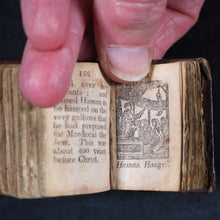 152
over his
; and
Haman is
to be hanged on
the very gallows that
he had prepared
for Mordecai the
Jew. This was
about 400 years
before Christ.
Haman Hange